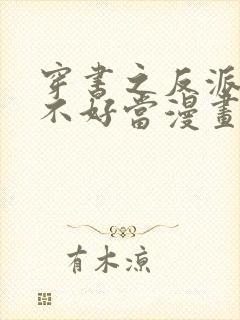 穿書之反派
不好當漫畫
有木涼